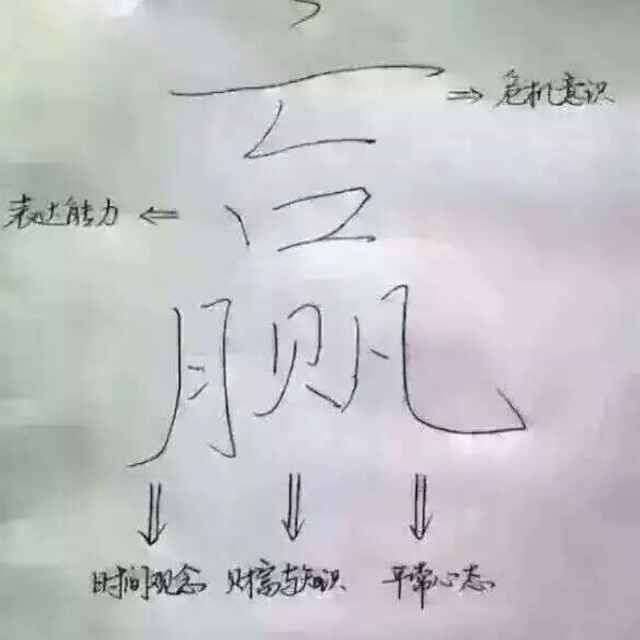 危机意识
表达能力
赢
时间观念 财富与知识 平常心态